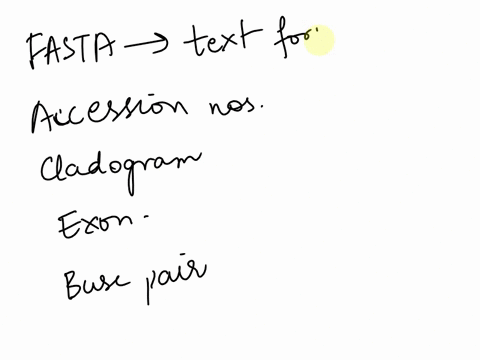 FASTA → text for
Accession nos.
Cladogram
Exon.
Base pair